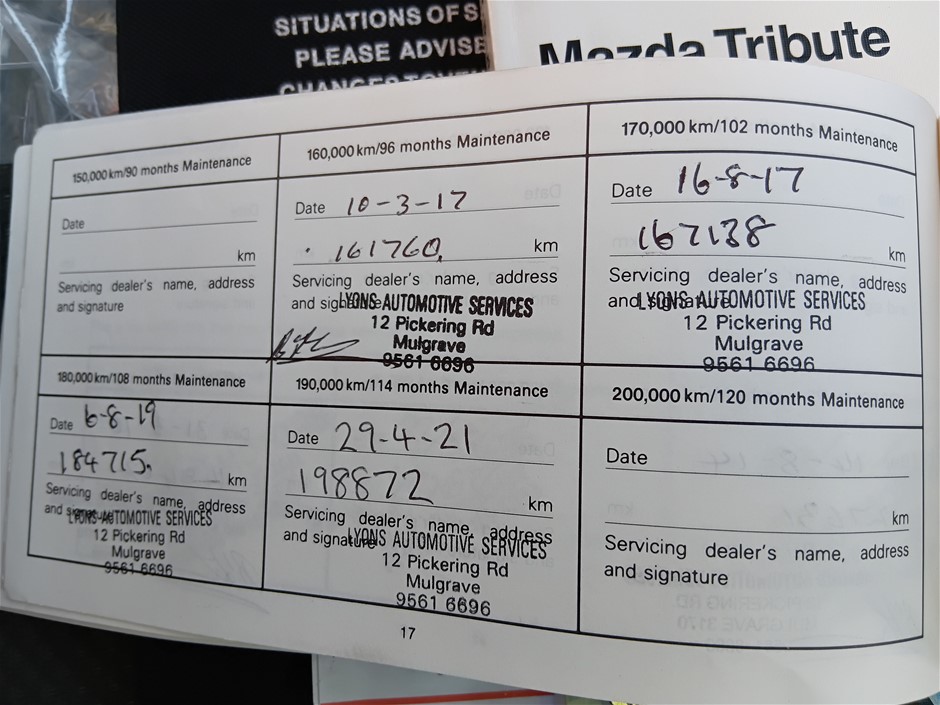 SITUATIONS OF S
PLEASE ADVISE
Mazda Tribute
150,000 km/90 months Maintenance
Date
km
Servicing dealer's name, address
and signature
160,000 km/96 months Maintenance
Date 10-3-17
161760 km
Servicing dealer's name, address
and signature LYONS AUTOMOTIVE SERVICES
12 Pickering Rd
Mulgrave
9561 6696
170,000 km/102 months Maintenance
Date 16-8-17
167138 km
Servicing dealer's name, address
and signature LYONS AUTOMOTIVE SERVICES
12 Pickering Rd
Mulgrave
9561 6696
180,000 km/108 months Maintenance
Date 6-8-19
184715 km
Servicing dealer's name, address
and signature LYONS AUTOMOTIVE SERVICES
12 Pickering Rd
Mulgrave
9561 6696
190,000 km/114 months Maintenance
Date 29-4-21
198872 km
Servicing dealer's name, address
and signature LYONS AUTOMOTIVE SERVICES
12 Pickering Rd
Mulgrave
9561 6696
200,000 km/120 months Maintenance
Date
km
Servicing dealer's name, address
and signature
17